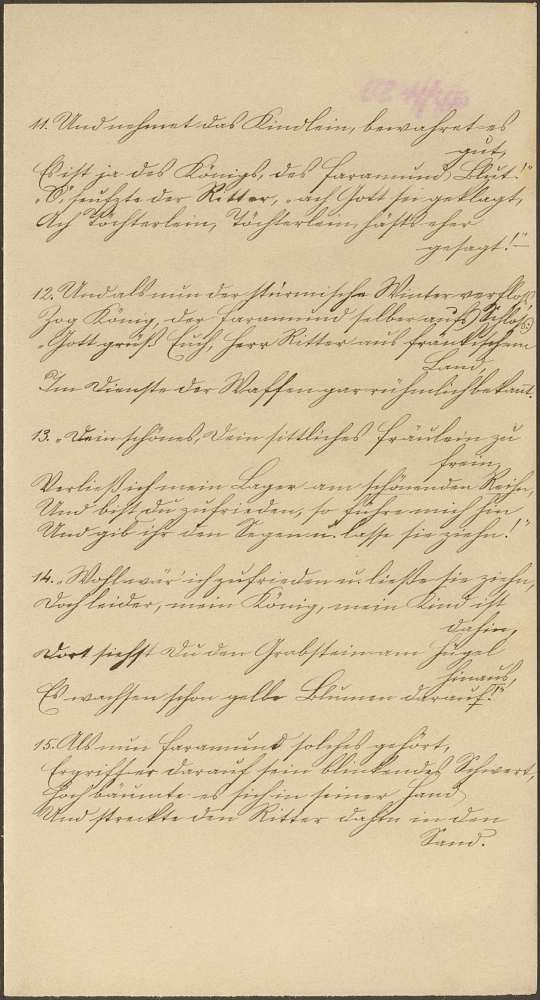 11. Und nehmet das Kindlein, bewahret es
gut,
Es ist ja des Königs, des Faramund Blut!"
"O, seufzte der Ritter, "ach Gott sei's geklagt,
Ach Töchterlein, Töchterlein, hätt'st eher
gesagt!"–
12. Und als nun der stürmische Winter verfloß,
Zog König, der Faramund selber aufs Schloß:
"Gott grüß Euch, Herr Ritter aus fränkischem
Land,
Im Dienste der Waffen gar rühmlich bekannt.
13. "Dein schönes, Dein sittliches Fräulein zu
frein,
Verließ ich mein Lager am schönenden Rhein,
Und bist du zufrieden, so führe mich hin
Und gib ihr den Segen u. lasse sie ziehn!"
14. "Wohl wär' ich zufrieden u. ließe sie ziehn,
Doch leider, mein König, mein Kind ist
dahin,
Dort siehst Du den Grabstein am Hügel
hinaus,
Es wachsen schon gelbe Blumen darauf."
15. Als nun Faramund solches gehört,
Ergriff er darauf sein blinkendes Schwert,
Hoch bäumte es sich in seiner Hand
Und streckte den Ritter dahin in den
Sand.